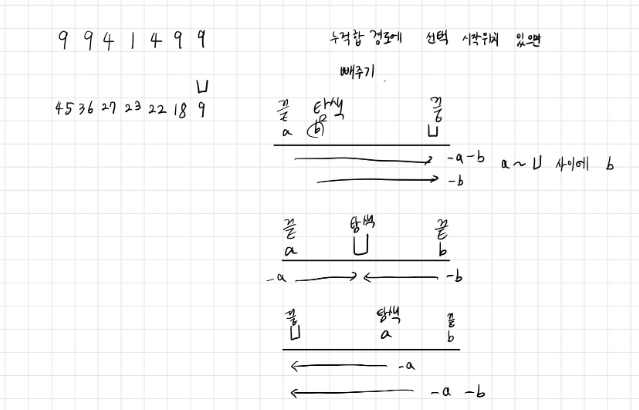 9 9 4 1 4 9 9
45 36 27 23 22 18 9
누적합 경로에 선택 시작위치 있으면
빼주기
끝 탐색 끝
a b
-a-b
-b
a ~ ㅂ 사이에 b
끝 탐색 끝
a ㅂ b
-a -b
끝 탐색 끝
a b
-a
-a -b